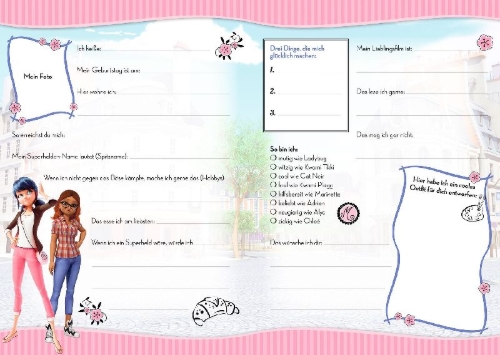 Mein Foto
Ich heiße:
Mein Geburtstag ist am:
Hier wohne ich:
So erreichst du mich:
Mein Superhelden-Name lautet (Spitzname):
Wenn ich nicht gegen das Böse kämpfe, mache ich gerne das (Hobbys):
Das esse ich am liebsten:
Wenn ich ein Superheld wäre, würde ich
Drei Dinge, die mich
glücklich machen:
1.
2.
3.
So bin ich:
mutig wie Ladybug
witzig wie Kwami Tikki
cool wie Cat Noir
faul wie Kwami Plagg
hilfsbereit wie Marinette
beliebt wie Adrien
neugierig wie Alya
zickig wie Chloé
Das wünsche ich dir:
Mein Lieblingsfilm ist:
Das lese ich gerne:
Das mag ich gar nicht:
Hier habe ich ein cooles
Outfit für dich entworfen: